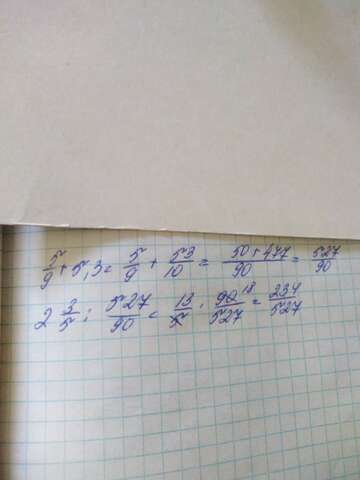 5/9 + 5,3 = 5/9 + 53/10 = 50+477/90 = 527/90
2 3/5 : 527/90 = 13/5 · 90 18/527 = 234/527